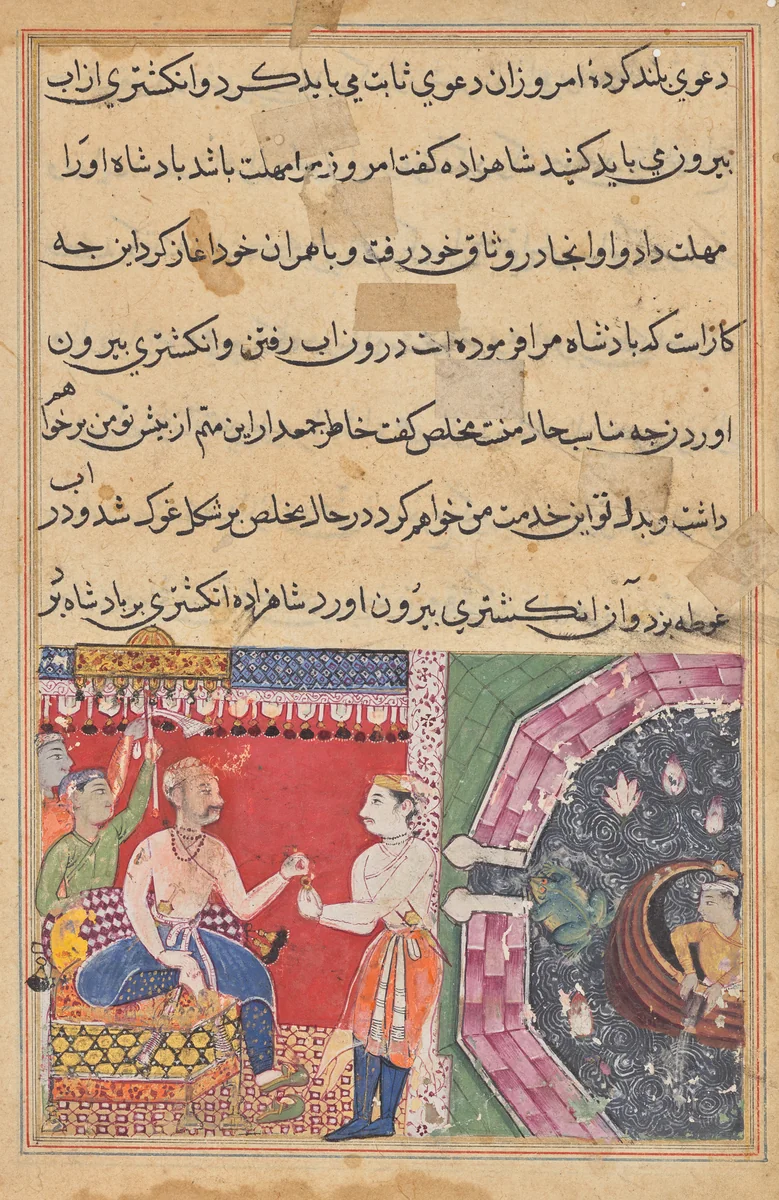 دعوي بلند كردهٔ امروز ان دعوي ثابت مي بايد كرد و انكشتري از اب
بيرون مي بايد كشيد شاهزاده كفت امروز مرا مهلت باشد بادشاه اورا
مهلت داد و او انجا در وثاق خود رفت و با همران خود اغاز كرد اين جه
كار است كه بادشاه مرا فرموده است درون اب رفتن و انكشتري بيرون
اوردن جه مناسب حال منست مخلص كفت خاطر جمعدار اين مهّم از بيش تو من بر خواهم
داشت و بدل تو اين خدمت من خواهم كرد در حال مخلص بر شكل غوك شد و در اب
غوطه بزد و آن انكشتري بيرُون اورد شاهزاده انكشتري بر بادشاه بُر